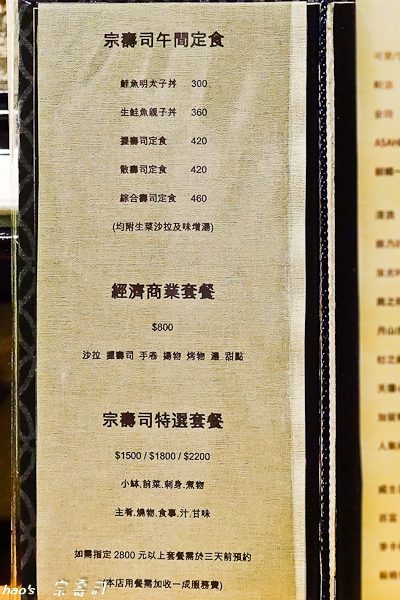 宗壽司午間定食
鮭魚明太子丼 300
生鮭魚親子丼 360
握壽司定食 420
散壽司定食 420
綜合壽司定食 460
(均附生菜沙拉及味增湯)
經濟商業套餐
$800
沙拉 握壽司 手卷 揚物 烤物 湯 甜點
宗壽司特選套餐
$1500 / $1800 / $2200
小缽.前菜.刺身.煮物
主肴.燒物.食事.汁.甘味
如需指定 2800 元以上套餐需於三天前預約
(本店用餐需加收一成服務費)
hao's 宗壽司